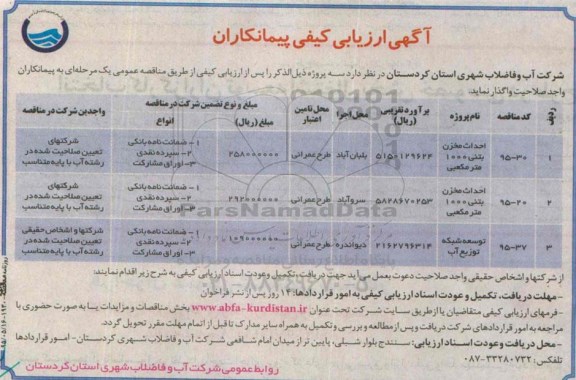 آگهی ارزیابی کیفی پیمانکاران
شرکت آب و فاضلاب شهری استان کردستان در نظر دارد سه پروژه ذیل‌الذکر را پس از ارزیابی کیفی از طریق مناقصه عمومی یک مرحله‌ای به پیمانکاران
واجد صلاحیت واگذار نماید:
ردیف کد مناقصه نام پروژه برآورد تقریبی (ریال) محل اجرا محل تامین اعتبار مبلغ و نوع تضمین شرکت در مناقصه واجدین شرکت در مناقصه
مبلغ (ریال) انواع
۱ ۹۵-۳۰ احداث مخزن بتنی ۱۰۰۰ متر مکعبی ۵۱۵۰۱۲۹۶۲۴ یلبان‌آباد طرح عمرانی ۲۵۸۰۰۰۰۰۰ ۱- ضمانت نامه بانکی ۲- سپرده نقدی ۳- اوراق مشارکت شرکتهای تعیین صلاحیت شده در رشته آب با پایه متناسب
۲ ۹۵-۲۰ احداث مخزن بتنی ۱۰۰۰ متر مکعبی ۵۸۲۸۶۷۰۲۵۳ سروآباد طرح عمرانی ۲۹۲۰۰۰۰۰۰ ۱- ضمانت نامه بانکی ۲- سپرده نقدی ۳- اوراق مشارکت شرکتهای تعیین صلاحیت شده در رشته آب با پایه متناسب
۳ ۹۵-۳۷ توسعه شبکه توزیع آب ۲۱۶۲۷۹۶۳۱۴ دیواندره طرح عمرانی ۱۰۹۰۰۰۰۰۰ ۱- ضمانت نامه بانکی ۲- سپرده نقدی ۳- اوراق مشارکت شرکتها و اشخاص حقیقی تعیین صلاحیت شده در رشته آب با پایه متناسب
ParsNamadData
از شرکتها و اشخاص حقیقی واجد صلاحیت دعوت بعمل می‌آید جهت دریافت، تکمیل و عودت اسناد ارزیابی کیفی به شرح زیر اقدام نمایند:
- مهلت دریافت، تکمیل و عودت اسناد ارزیابی کیفی به امور قراردادها: ۱۴ روز پس از نشر فراخوان
- فرمهای ارزیابی کیفی متقاضیان یا از طریق سایت شرکت تحت عنوان www.abfa-kurdistan.ir بخش مناقصات و مزایدات یا به صورت حضوری با
مراجعه به امور قراردادهای شرکت دریافت و پس از مطالعه و بررسی و تکمیل به همراه سایر مدارک تا قبل از اتمام مهلت مقرر تحویل گردد.
- محل دریافت و عودت اسناد ارزیابی: سنندج بلوار شبلی، پایین تر از میدان امام شافعی شرکت آب و فاضلاب شهری کردستان - امور قراردادها
تلفکس: ۳۳۲۸۰۷۳۲-۰۸۷
روابط عمومی شرکت آب و فاضلاب شهری استان کردستان